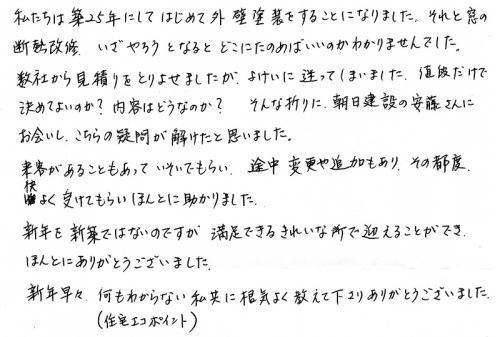 私たちは築25年にしてはじめて外壁塗装をすることになりました。それと窓の
断熱改修、いざやろうとなるとどこにたのめばいいのかわかりませんでした。
数社から見積りをとりよせましたが、よけいに迷ってしまいました。値段だけで
決めてよいのか？内容はどうなのか？ そんな折りに、朝日建設の安藤さんに
お会いし、こちらの疑問が解けたと思いました。
来客があることもあっていそいでもらい、途中変更や追加もあり、その都度、
快よく受けてもらいほんとに助かりました。
新年を新築ではないのですが満足できるきれいな所で迎えることができ、
ほんとにありがとうございました。
新年早々、何もわからない私共に根気よく教えて下さりありがとうございました。
（住宅エコポイント）